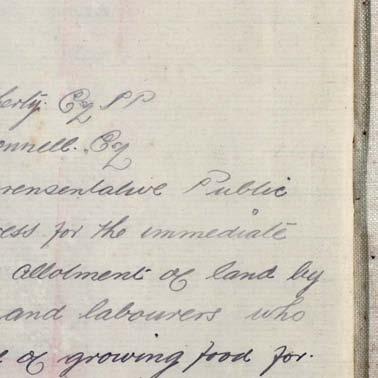 herty. Esq P P
onnell. Esq
rensentative Public
ress for the immediate
allotment of land by
and labourers who
e of growing food for.